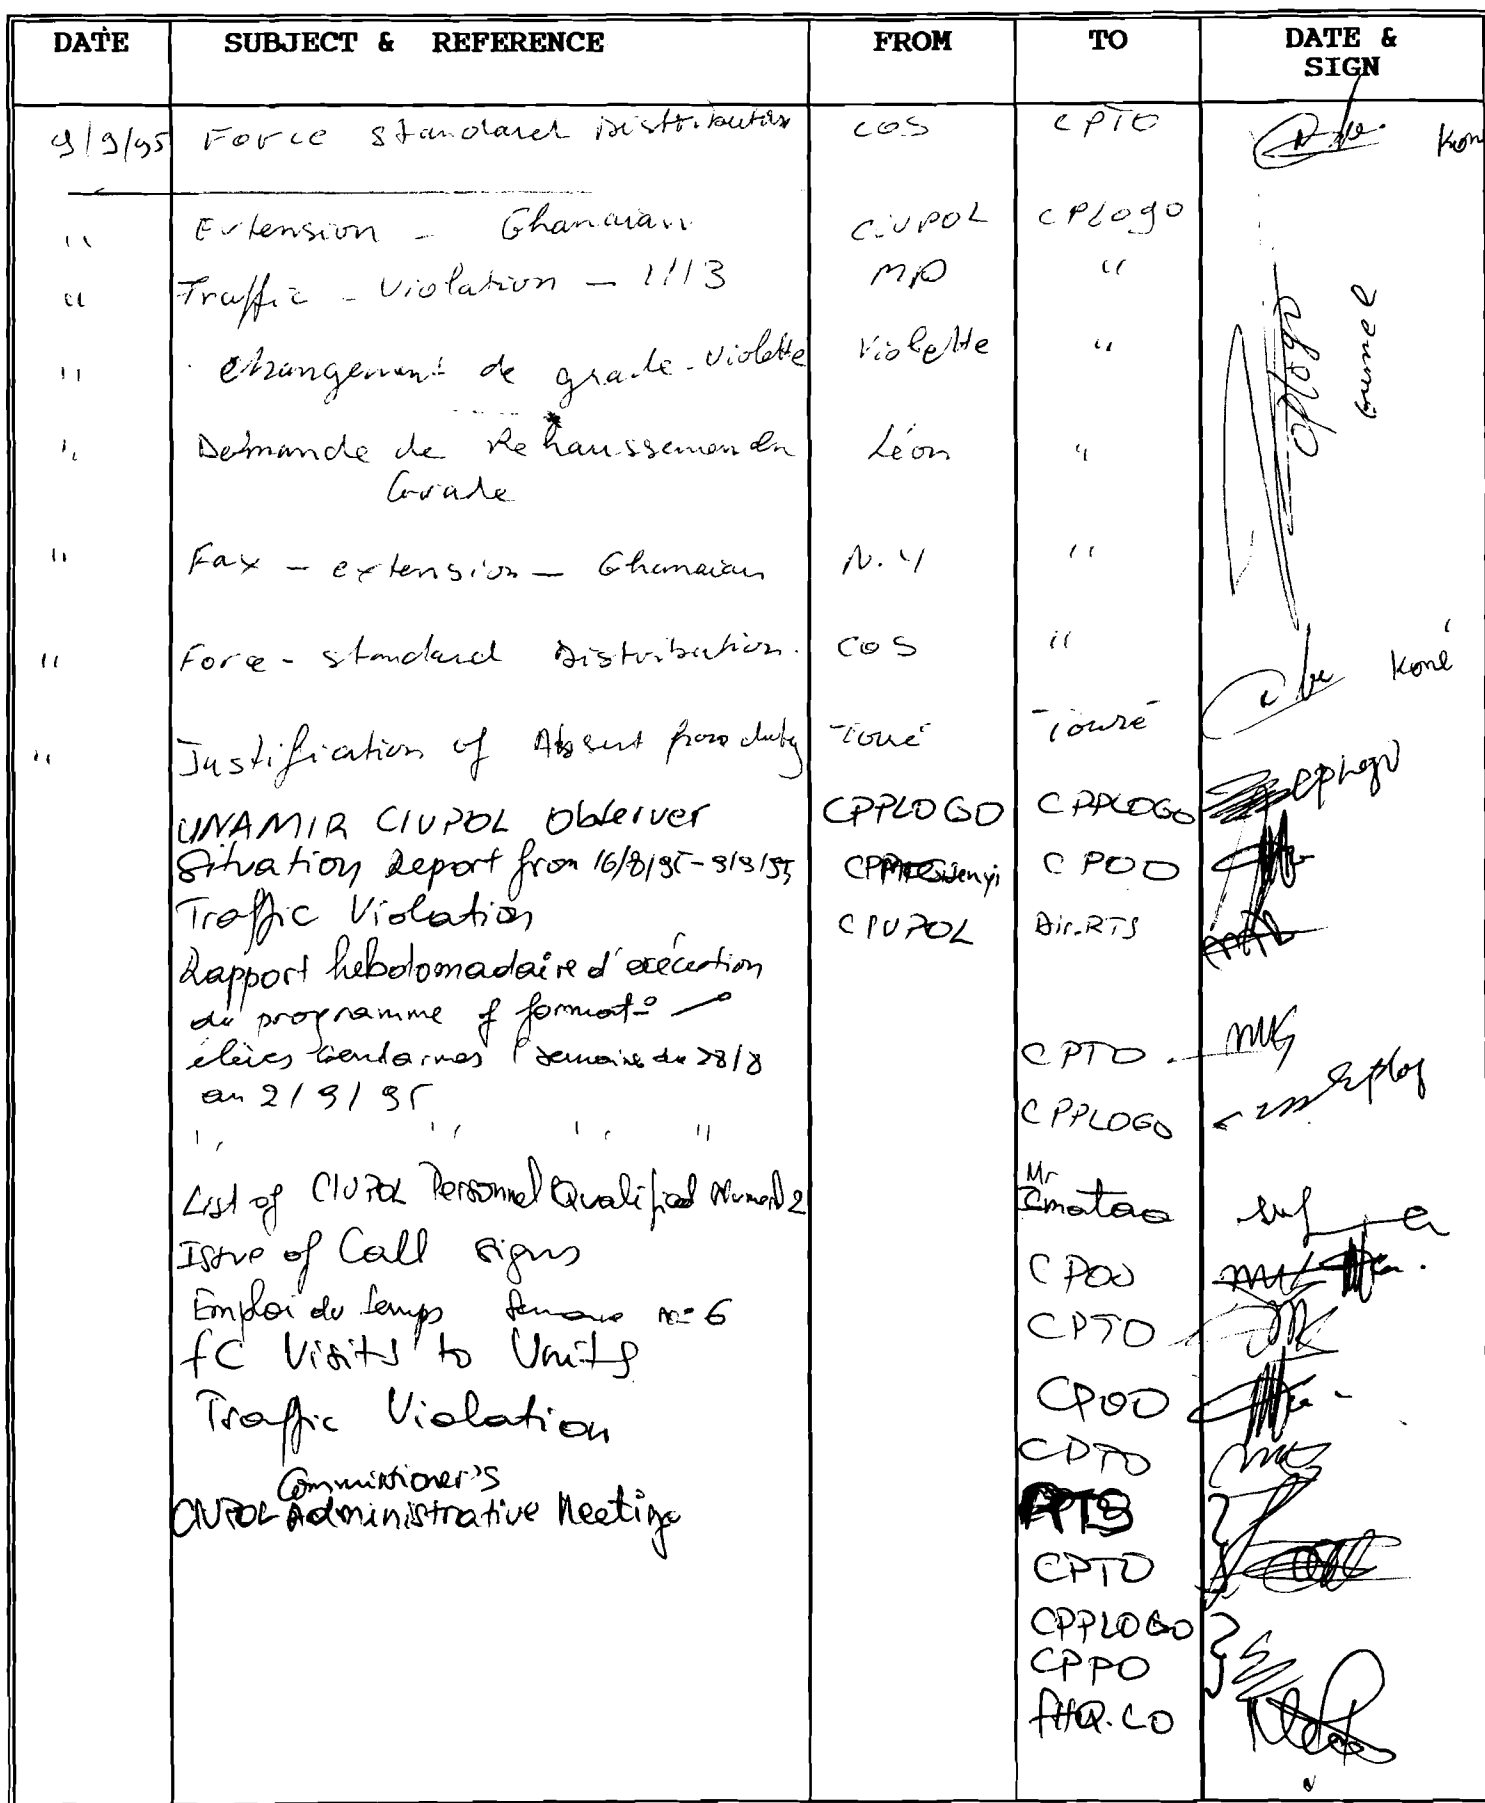 DATE SUBJECT & REFERENCE FROM TO DATE & SIGN
9/9/95 Force standard Distribution COS CPTO Koné
" Extension - Ghanaian CIVPOL CPLogo
" Traffic - Violation - 1113 MP "
" Changement de grade - Violette Violette "
" Demande de Rehaussement en Grade Léon "
" Fax - extension - Ghanaian N.Y "
" Force - standard Distribution. COS " Koné
" Justification of Absent from duty Touré Touré
UNAMIR CIVPOL Observer CPPLOGO CPPLOGO
Situation Report from 16/8/95-3/9/95 CPOO
Traffic Violation CIVPOL Dir.RTS
Rapport hebdomadaire d'exécution
du programme of format°
élèves Gendarmes (semaine du 28/8 CPTO
au 2/9/95
" " " " CPPLOGO
List of CIVPOL Personnel Qualified 2 Mr
Issue of Call signs CPOO
Emploi du temps Semaine N° 6 CPTO
FC Visits to Units CPOO
Traffic Violation CPTO
Commissioner's
CIVPOL Administrative Meeting
CPTO
CPPLOGO
CPPO
FHQ.LO